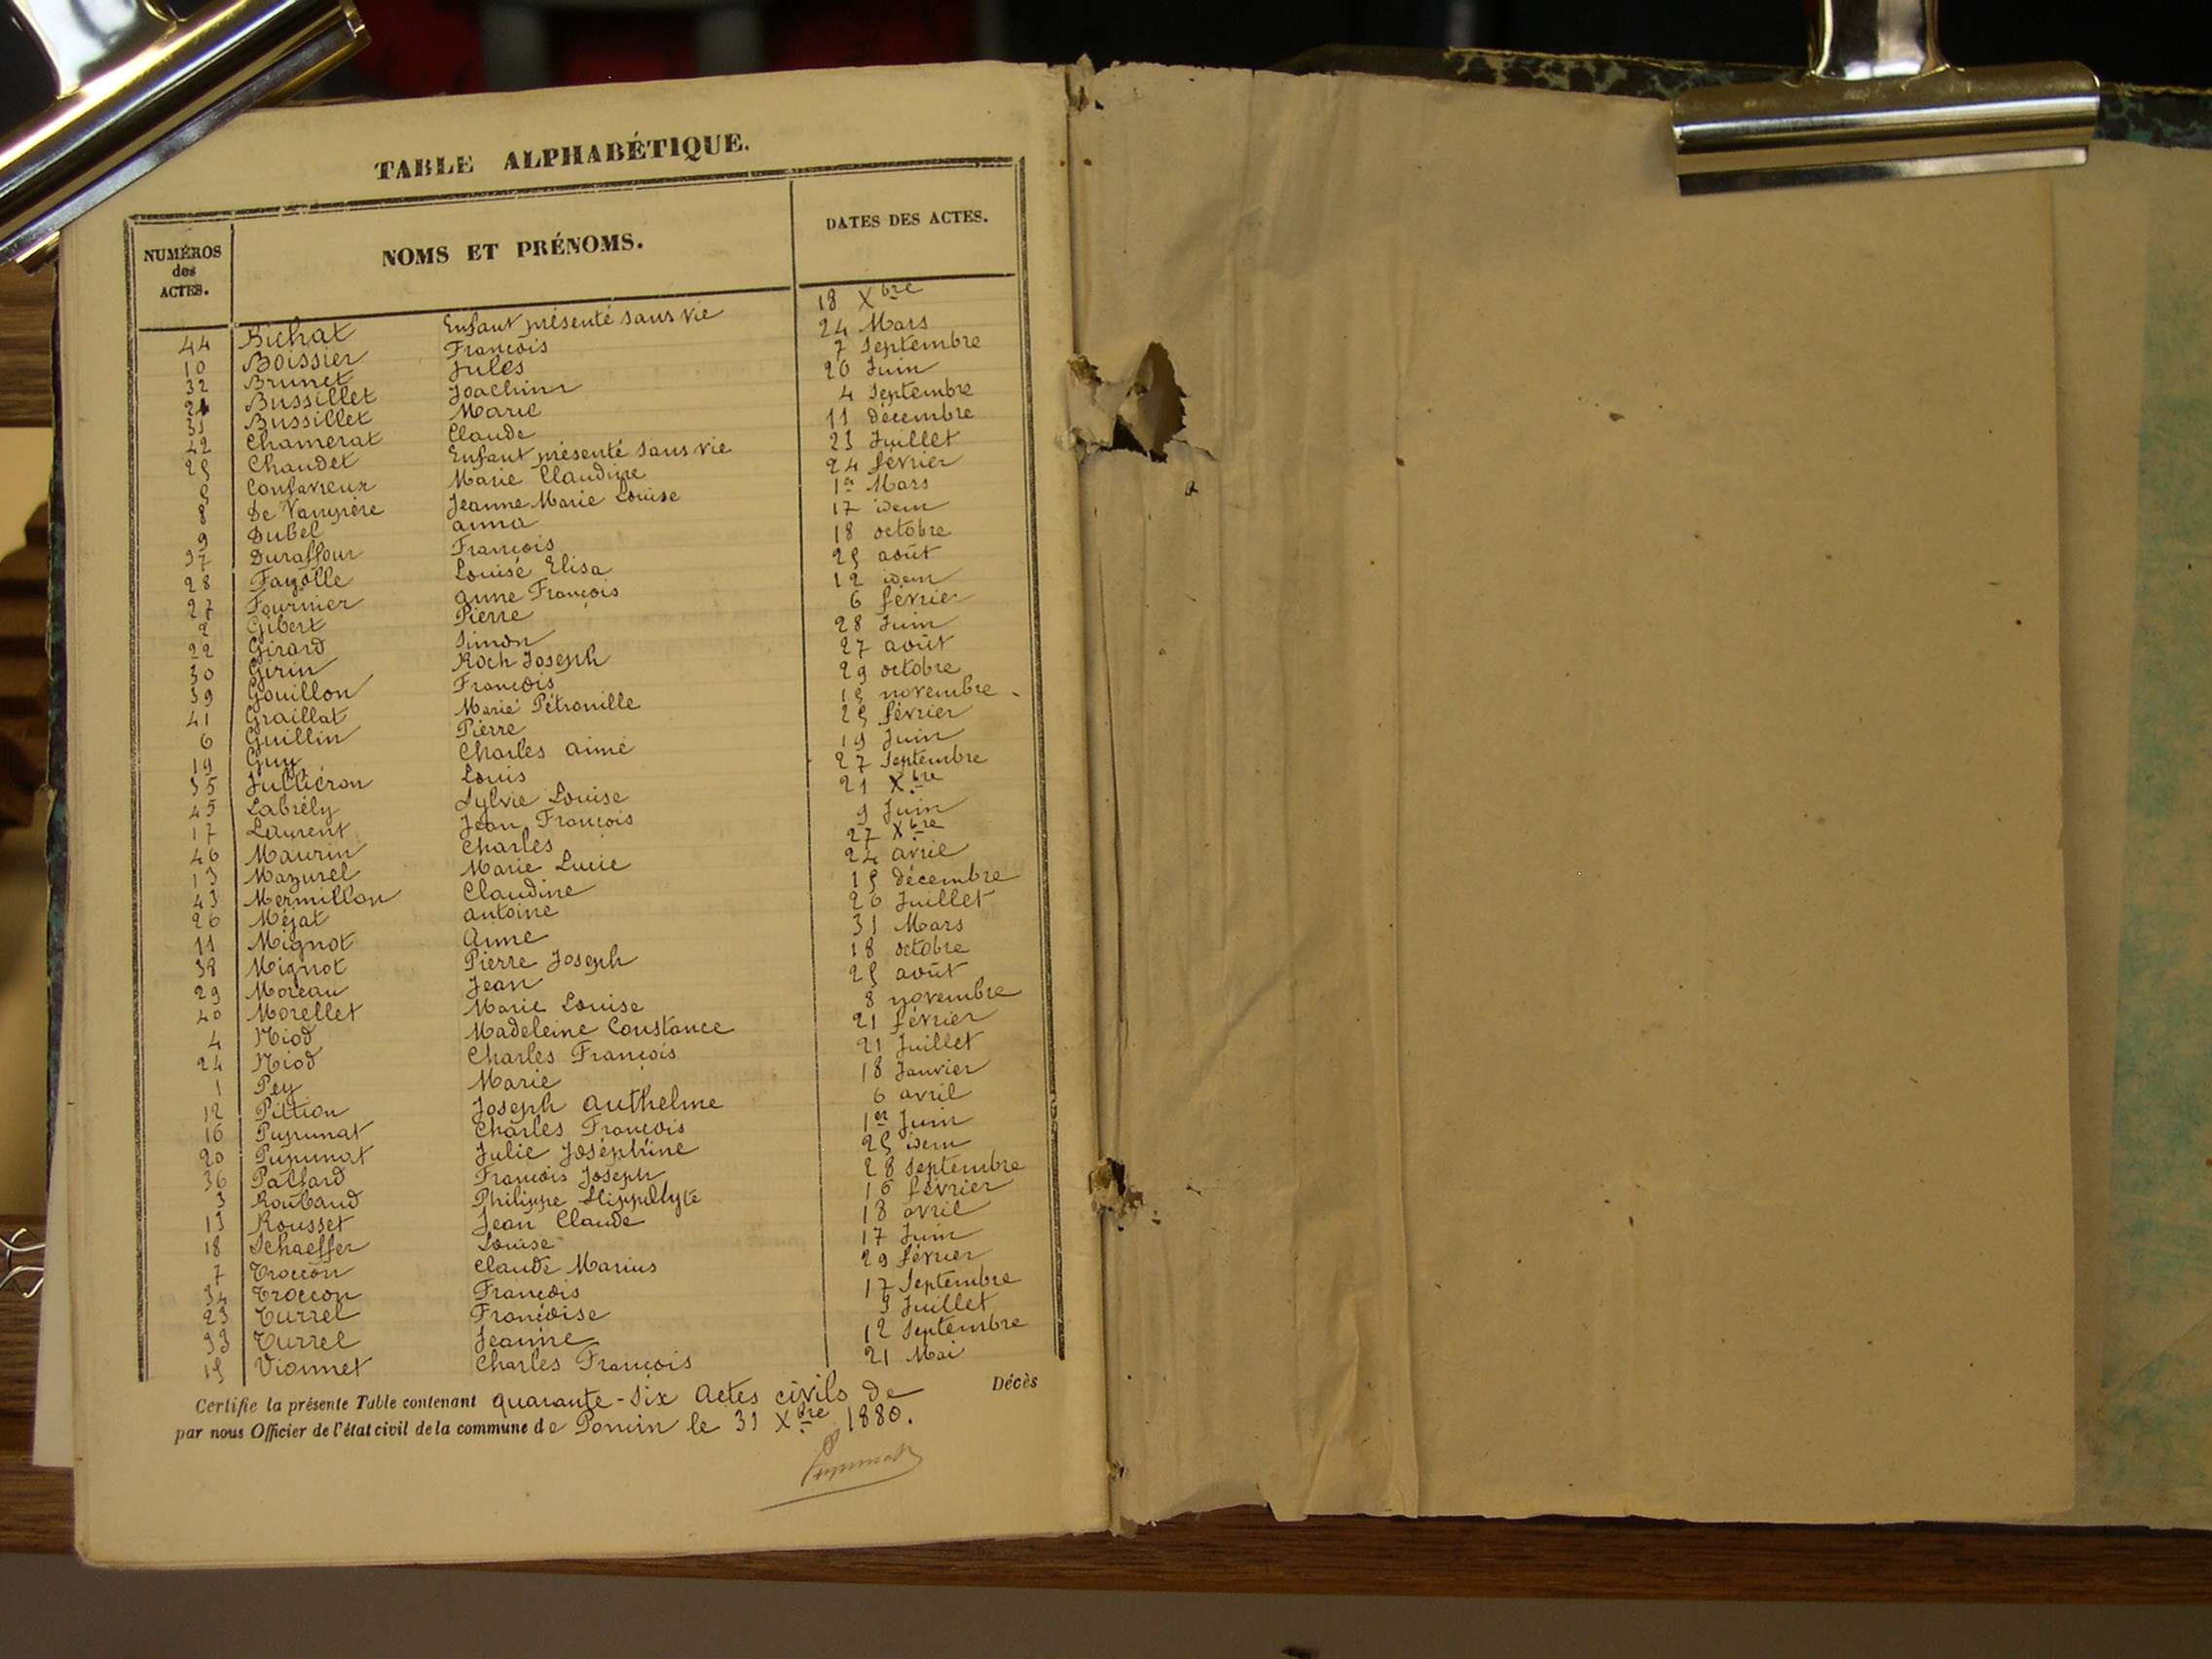 TABLE ALPHABÉTIQUE.
NUMÉROS des ACTES. NOMS ET PRÉNOMS. DATES DES ACTES.
44 Bichat Enfant présenté sans vie 18 Xbre
10 Boissier François 24 Mars
32 Brunet Jules 7 Septembre
21 Bussillet Joachim 26 Juin
31 Bussillet Marie 4 Septembre
42 Chamerat Claude 11 décembre
25 Chaudet Enfant présenté sans vie 23 Juillet
5 Confavreux Marie Claudine 24 février
8 De Vanpière Jeanne Marie Louise 1er Mars
9 Dubel anna 17 idem
37 Duraffour François 18 octobre
28 Fayolle Louise Elisa 25 août
27 Fournier anne François 12 idem
2 Gibert Pierre 6 février
22 Girard Simon 28 Juin
30 Girin Roch Joseph 27 août
39 Gouillon François 29 octobre
41 Graillat Marie Pétronille 15 novembre
6 Guillin Pierre 25 février
19 Guy Charles aimé 19 Juin
35 Julliéron Louis 27 Septembre
45 Labrély Sylvie Louise 21 Xbre
17 Laurent Jean François 9 Juin
46 Maurin Charles 27 Xbre
13 Mazurel Marie Lucie 24 avril
43 Mermillon Claudine 15 décembre
26 Méjat antoine 26 Juillet
11 Mignot Anne 31 Mars
38 Mignot Pierre Joseph 18 octobre
29 Moreau Jean 25 août
40 Morellet Marie Louise 8 novembre
4 Niod Madeleine Constance 21 février
24 Niod Charles François 21 Juillet
1 Pey Marie 18 Janvier
12 Pittion Joseph anthelme 6 avril
16 Pupunat Charles François 1er Juin
20 Pupunat Julie Joséphine 25 idem
36 Pallard François Joseph 28 Septembre
3 Roubaud Philippe Hippollyte 16 février
13 Rousset Jean Claude 18 avril
18 Schaeffer Louise 17 Juin
7 Troccon Claude Marius 29 février
34 Troccon François 17 Septembre
23 Turrel Françoise 3 Juillet
33 Turrel Jeanne 12 Septembre
15 Vionnet Charles François 21 Mai
Certifie la présente Table contenant quarante-six actes civils de Décès
par nous Officier de l'état civil de la commune de Poncin le 31 Xbre 1880.